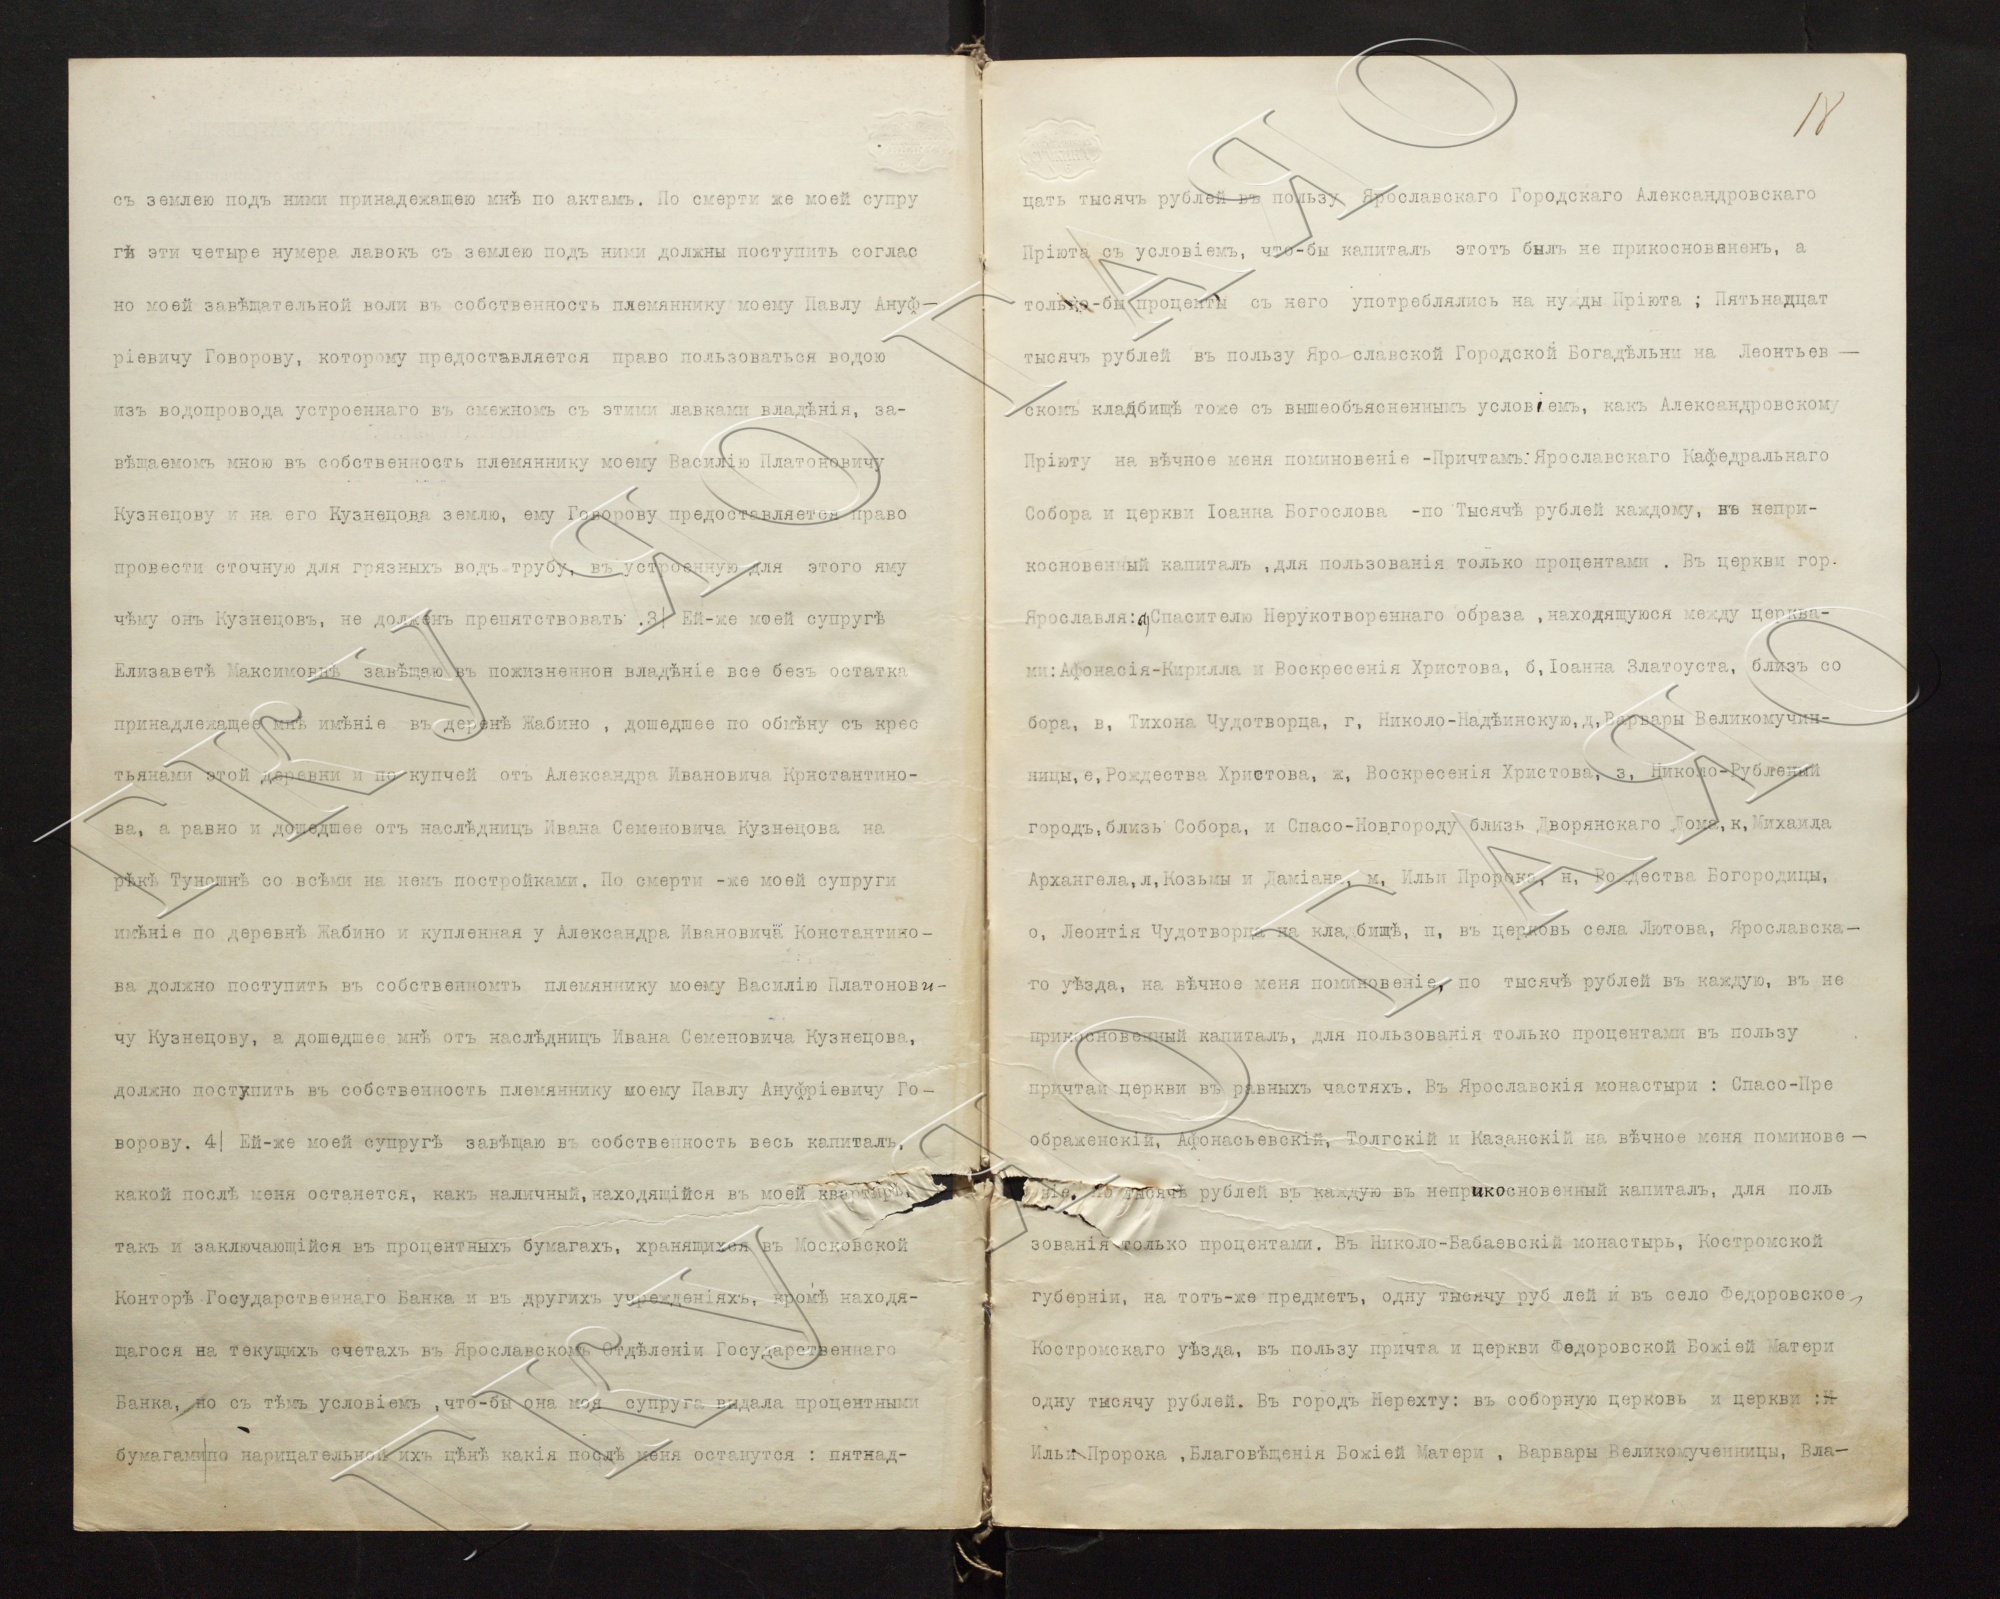 съ землею подъ ними принадежащею мнѣ по актамъ. По смерти же моей супру
гѣ эти четыре нумера лавокъ съ землею подъ ними должны поступить соглас
но моей завѣщательной воли въ собственность племяннику моему Павлу Ануф—
ріевичу Говорову, которому предоставляется право пользоваться водою
изъ водопровода устроеннаго въ смежномъ съ этими лавками владѣнія, за-
вѣщаемомъ мною въ собственность племяннику моему Василію Платоновичу
Кузнецову и на его Кузнецова землю, ему Говорову предоставляется право
провести сточную для грязныхъ водъ трубу, въ устроенную для этого яму
чѣму онъ Кузнецовъ, не долженъ препятствовать .3| Ей-же моей супругѣ
Елизаветѣ Максимовнѣ завѣщаю въ пожизненнон владѣніе все безъ остатка
принадлежащее мнѣ имѣніе въ деренѣ Жабино , дошедшее по обмѣну съ крес
тьянами этой деревни и по купчей отъ Александра Ивановича Крнстантино-
ва, а равно и дошедшее отъ наслѣдницъ Ивана Семеновича Кузнецова на
рѣкѣ Туношнѣ со всѣми на немъ постройками. По смерти -же моей супруги
имѣніе по деревнѣ Жабино и купленная у Александра Ивановича Константино-
ва должно поступить въ собственномть племяннику моему Василію Платонови-
чу Кузнецову, а дошедшее мнѣ отъ наслѣдницъ Ивана Семеновича Кузнецова,
должно поступить въ собственность племяннику моему Павлу Ануфріевичу Го—
ворову. 4| Ей-же моей супругѣ завѣщаю въ собственность весь капиталъ,
какой послѣ меня останется, какъ наличный,находящійся въ моей квартирѣ,
такъ и заключающійся въ процентныхъ бумагахъ, хранящихся въ Московской
Конторѣ Государственнаго Банка и въ другихъ учрежденіяхъ, кромѣ находя-
щагося на текущихъ счетахъ въ Ярославскомъ Отдѣленіи Государственнаго
Банка, но съ тѣмъ условіемъ ,что-бы она моя супруга выдала процентными
бумагами|по нарицательной ихъ цѣнѣ какія послѣ меня останутся : пятнад-
18
цать тысячъ рублей въ пользу Ярославскаго Городскаго Александровскаго
Пріюта съ условіемъ, что-бы капиталъ этотъ былъ не прикосновененъ, а
только-бы проценты съ него употреблялись на нужды Пріюта ; Пятьнадцат
тысячъ рублей въ пользу Яро славской Городской Богадѣльни на Леонтьев —
скомъ кладбищѣ тоже съ вышеобъясненнымъ условіемъ, какъ Александровскому
Пріюту на вѣчное меня поминовеніе -Причтамъ:Ярославскаго Кафедральнаго
Собора и церкви Іоанна Богослова -по Тысячѣ рублей каждому, въ непри-
косновенный капиталъ ,для пользованія только процентами . Въ церкви гор.
Ярославля:а)Спасителю Нерукотвореннаго образа ,находящуюся между церква-
ми:Афонасія-Кирилла и Воскресенія Христова, б,Іоанна Златоуста, близъ со
бора, в, Тихона Чудотворца, г, Николо-Надѣинскую,д,Варвары Великомучин-
ницы,е,Рождества Христова, ж, Воскресенія Христова, з, Николо-Рубленый
городъ,близъ Собора, и Спасо-Новгороду близъ Дворянскаго Дома,к,Михаила
Архангела,л,Козьмы и Даміана, м, Ильи Пророка, н, Рождества Богородицы,
о, Леонтія Чудотворца на кладбищѣ, п, въ церковь села Лютова, Ярославска—
го уѣзда, на вѣчное меня поминовеніе, по тысячѣ рублей въ каждую, въ не
прикосновенный капиталъ, для пользованія только процентами въ пользу
причтаи церкви въ равныхъ частяхъ. Въ Ярославскія монастыри : Спасо-Пре
ображенскій, Афонасьевскій, Толгскій и Казанскій на вѣчное меня поминове —
ніе, по тысячѣ рублей въ каждую въ неприкосновенный капиталъ, для поль
зованія только процентами. Въ Николо-Бабаевскій монастырь, Костромской
губерніи, на тотъ-же предметъ, одну тысячу руб лей и въ село Федоровское,
Костромскаго уѣзда, въ пользу причта и церкви Федоровской Божіей Матери
одну тысячу рублей. Въ городъ Нерехту: въ соборную церковь и церкви :И
Ильи-Пророка ,Благовѣщенія Божіей Матери , Варвары Великомученницы, Вла—
ГКУ ЯО ГАЯО
ГКУ ЯО ГАЯО